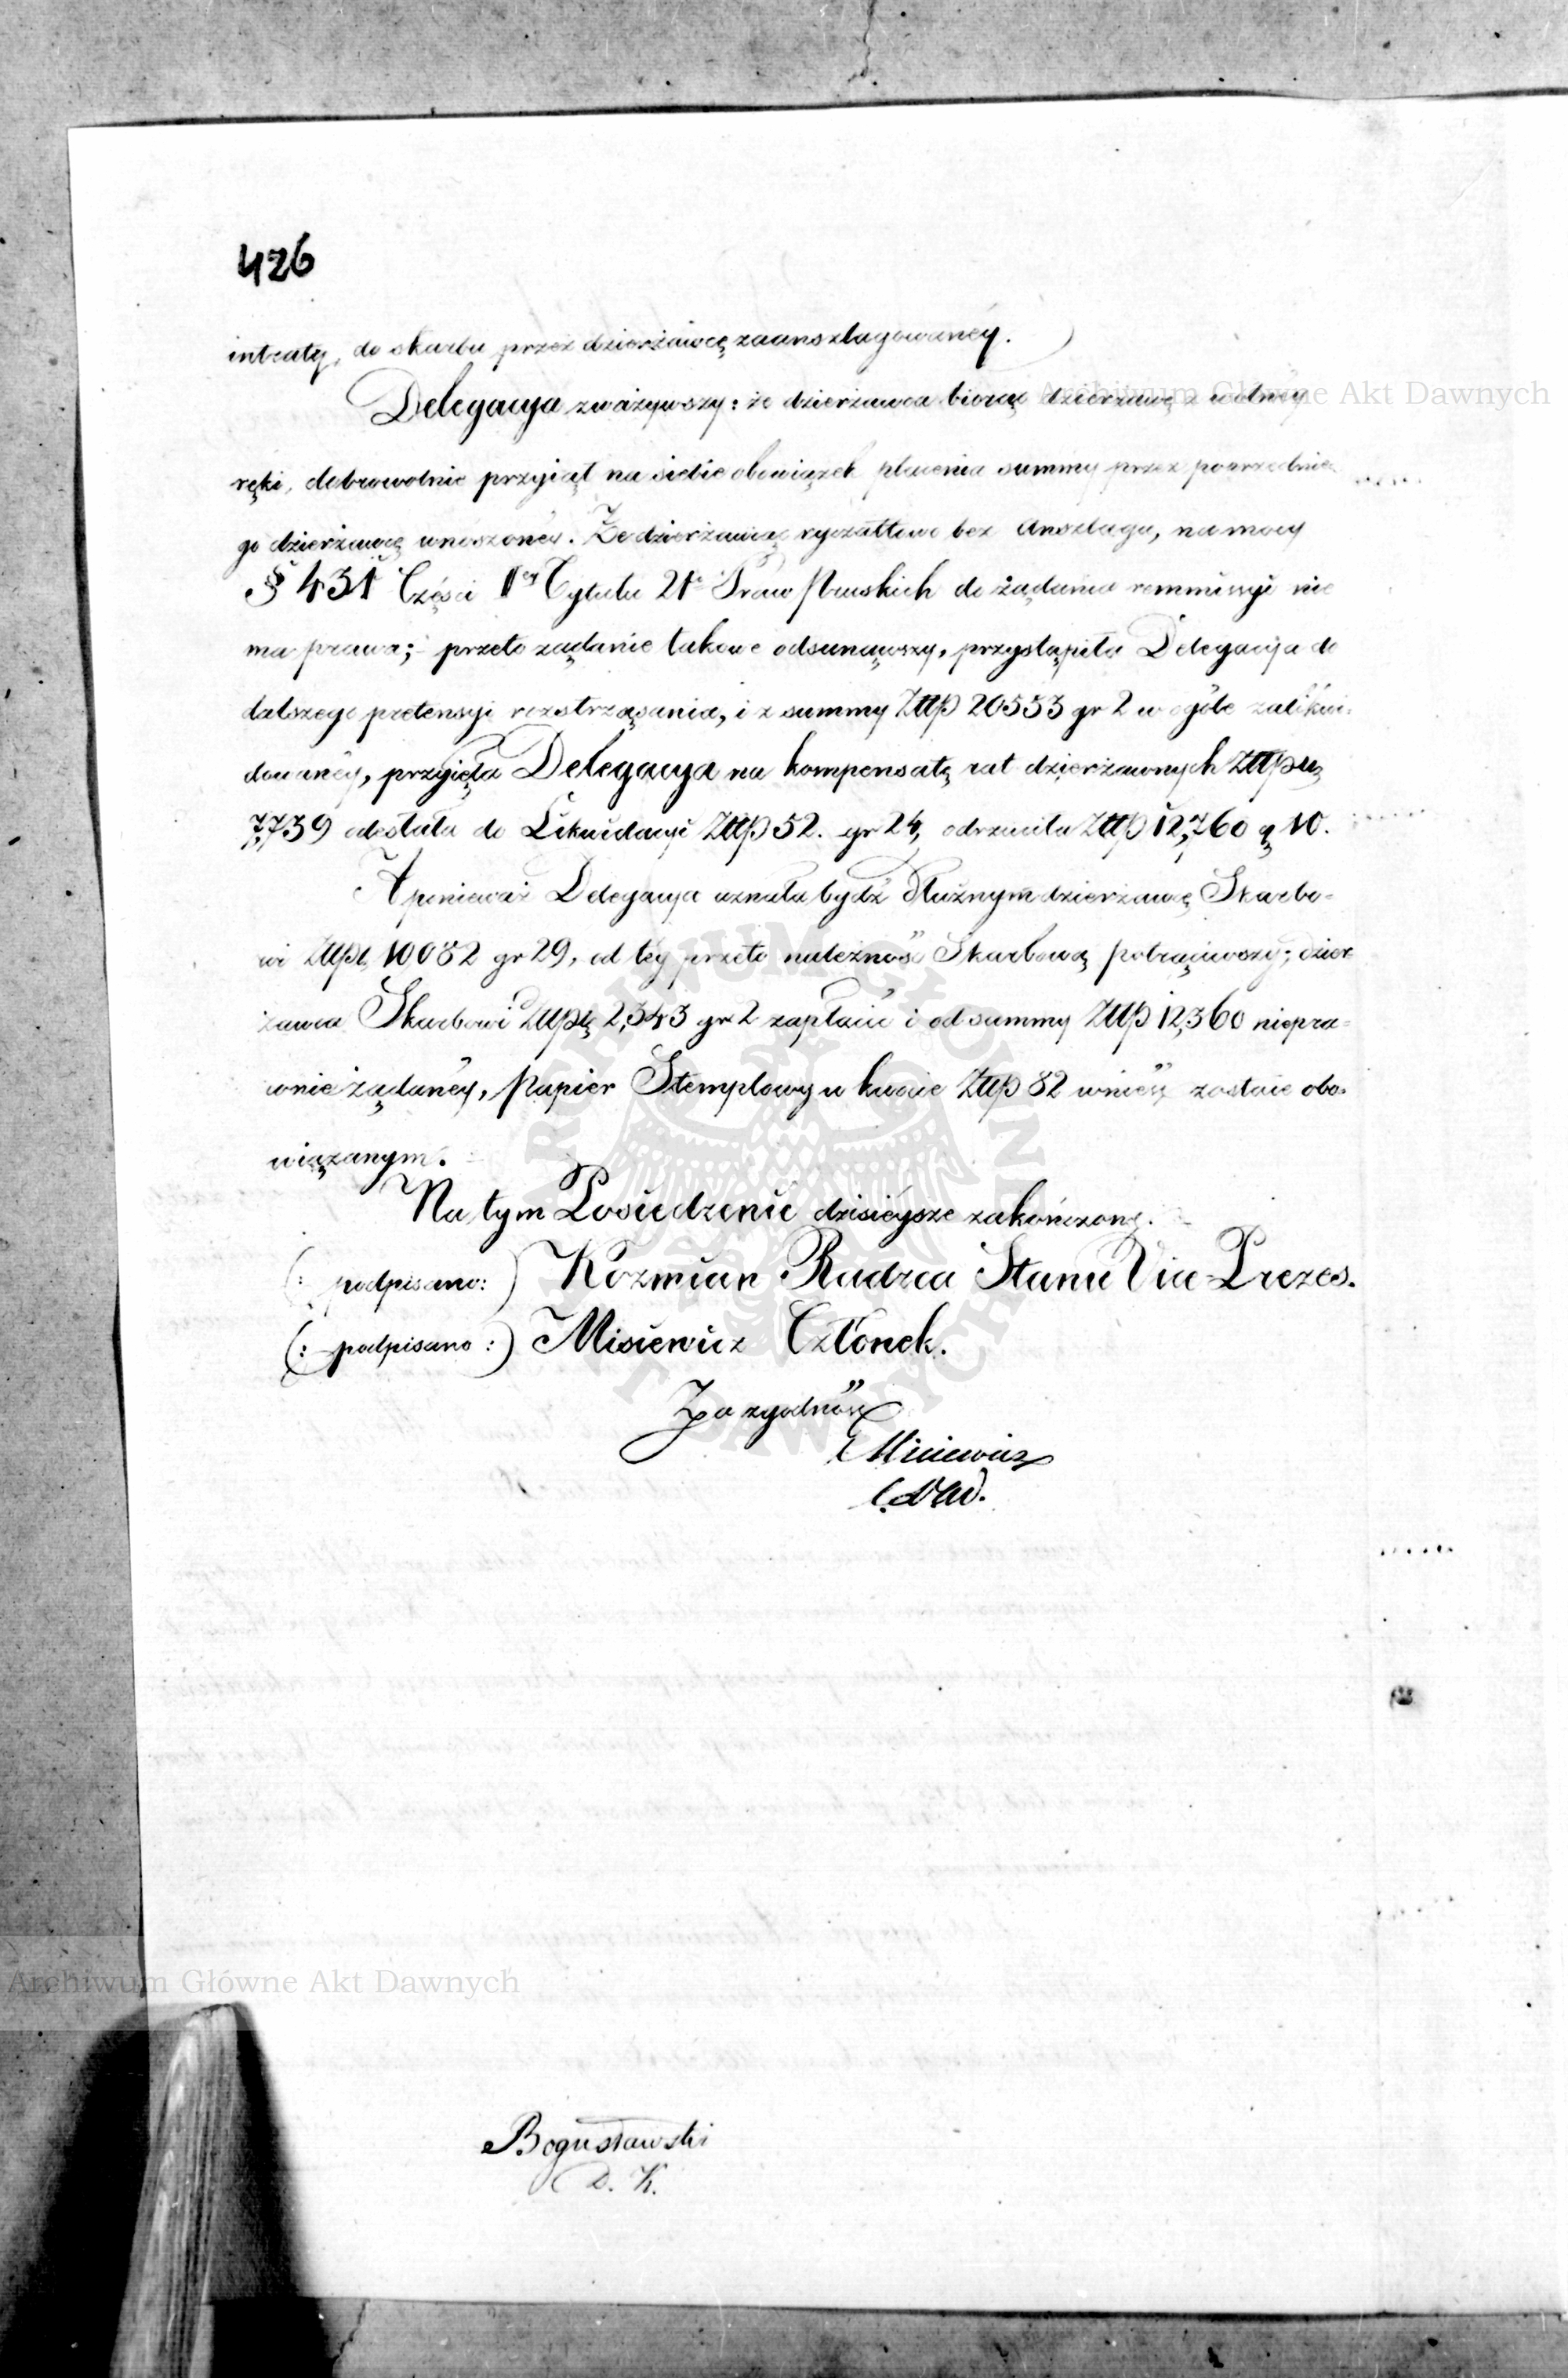 426
intraty, do skarbu przez dzierżawcę zaanszlagowanéy.
Delegacya zważywszy: że dzierżawca biorąc dzierżawę z wolnéy
ręki, dobrowolnie przyiął na siebie obowiązek płacenia summy przez poprzednie
go dzierżawcę wnoszonéy. Że dzierżawiąc ryczałtowo bez Anszlagu, na mocy
§ 431 Części I Tytułu 21 Praw Pruskich do żądania remmissyi nie
ma prawa; przeto żądanie takowe odsunąwszy, przystąpiła Delegacya do
dalszego pretensyi roztrząsania, i z summy Złłp 20553 gr 2 w ogóle zalikwi-
dowanéy, przyięła Delegacya na kompensatę rat dzierżawnych Złłp
7,739 odesłała do Likwidacyi Złłp 52. gr 24, odrzuciła Złłp 12,760 g 10.
A ponieważ Delegacya uznała bydź dłużnym dzierżawcę Skarbo-
wi Złłp 10082 gr 29, od téy przeto należność Skarbową potrąciwszy; dzier
żawca Skarbowi Złłp 2,343 gr 2 zapłacić i od summy Złłp 12,360 niepra-
wnie żądanéy, Papier Stemplowy w kwocie Złłp 82 wnieść zostaie obo-
wiązanym.
Na tym Posiedzenie dzisieysze zakończone.
(: podpisano:) Koźmian Radzca Stanu Vice Prezes.
(: podpisano :) Misiewicz Członek.
Za zgodność
Misiewicz
Bogusławski
D. K.
Archiwum Główne Akt Dawnych
Archiwum Główne Akt Dawnych
ARCHIWUM GŁÓWNE AKT DAWNYCH